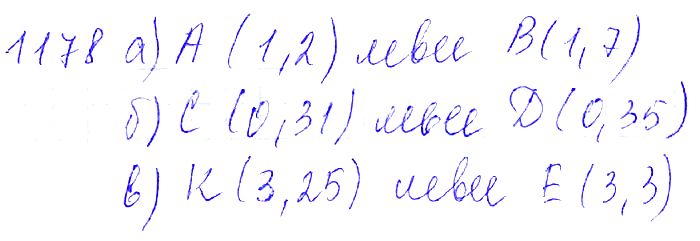 1178 а) A (1,2) левее B(1,7)
б) C (0,31) левее D(0,35)
в) K (3,25) левее E (3,3)